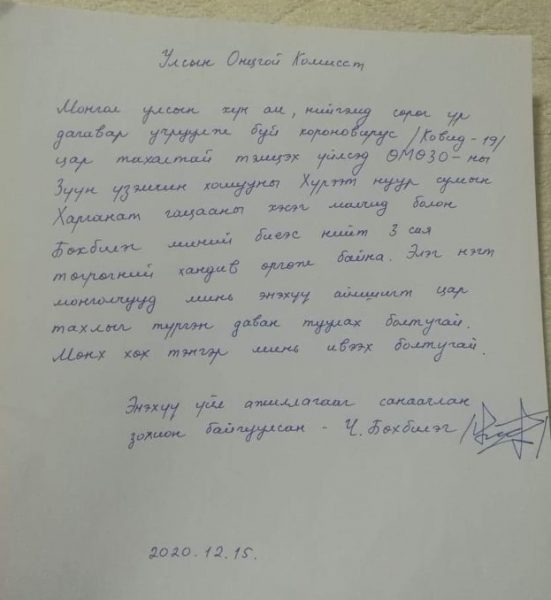 Улсын Онцгой Комисст
Монгол улсын хүн ам, нийгэмд сөрөг үр
дагавар учруулж буй короновирус /Ковид-19/
цар тахалтай тэмцэх үйлсэд ӨМӨЗО-ны
Зүүн үзэмчин хошууны Хүрээт нуур сумын
Харганат гацааны хэсэг малчид болон
Бөхбилэг миний биеэс нийт 3 сая
төгрөгний хандив өргөж байна. Элэг нэгт
монголчууд минь энэхүү аймшигт цар
тахлыг түргэн даван туулах болтугай.
Мөнх хөх тэнгэр минь ивээх болтугай.
Энэхүү үйл ажиллагааг санаачлан
зохион байгуулсан - Ч. Бөхбилэг /
2020.12.15.